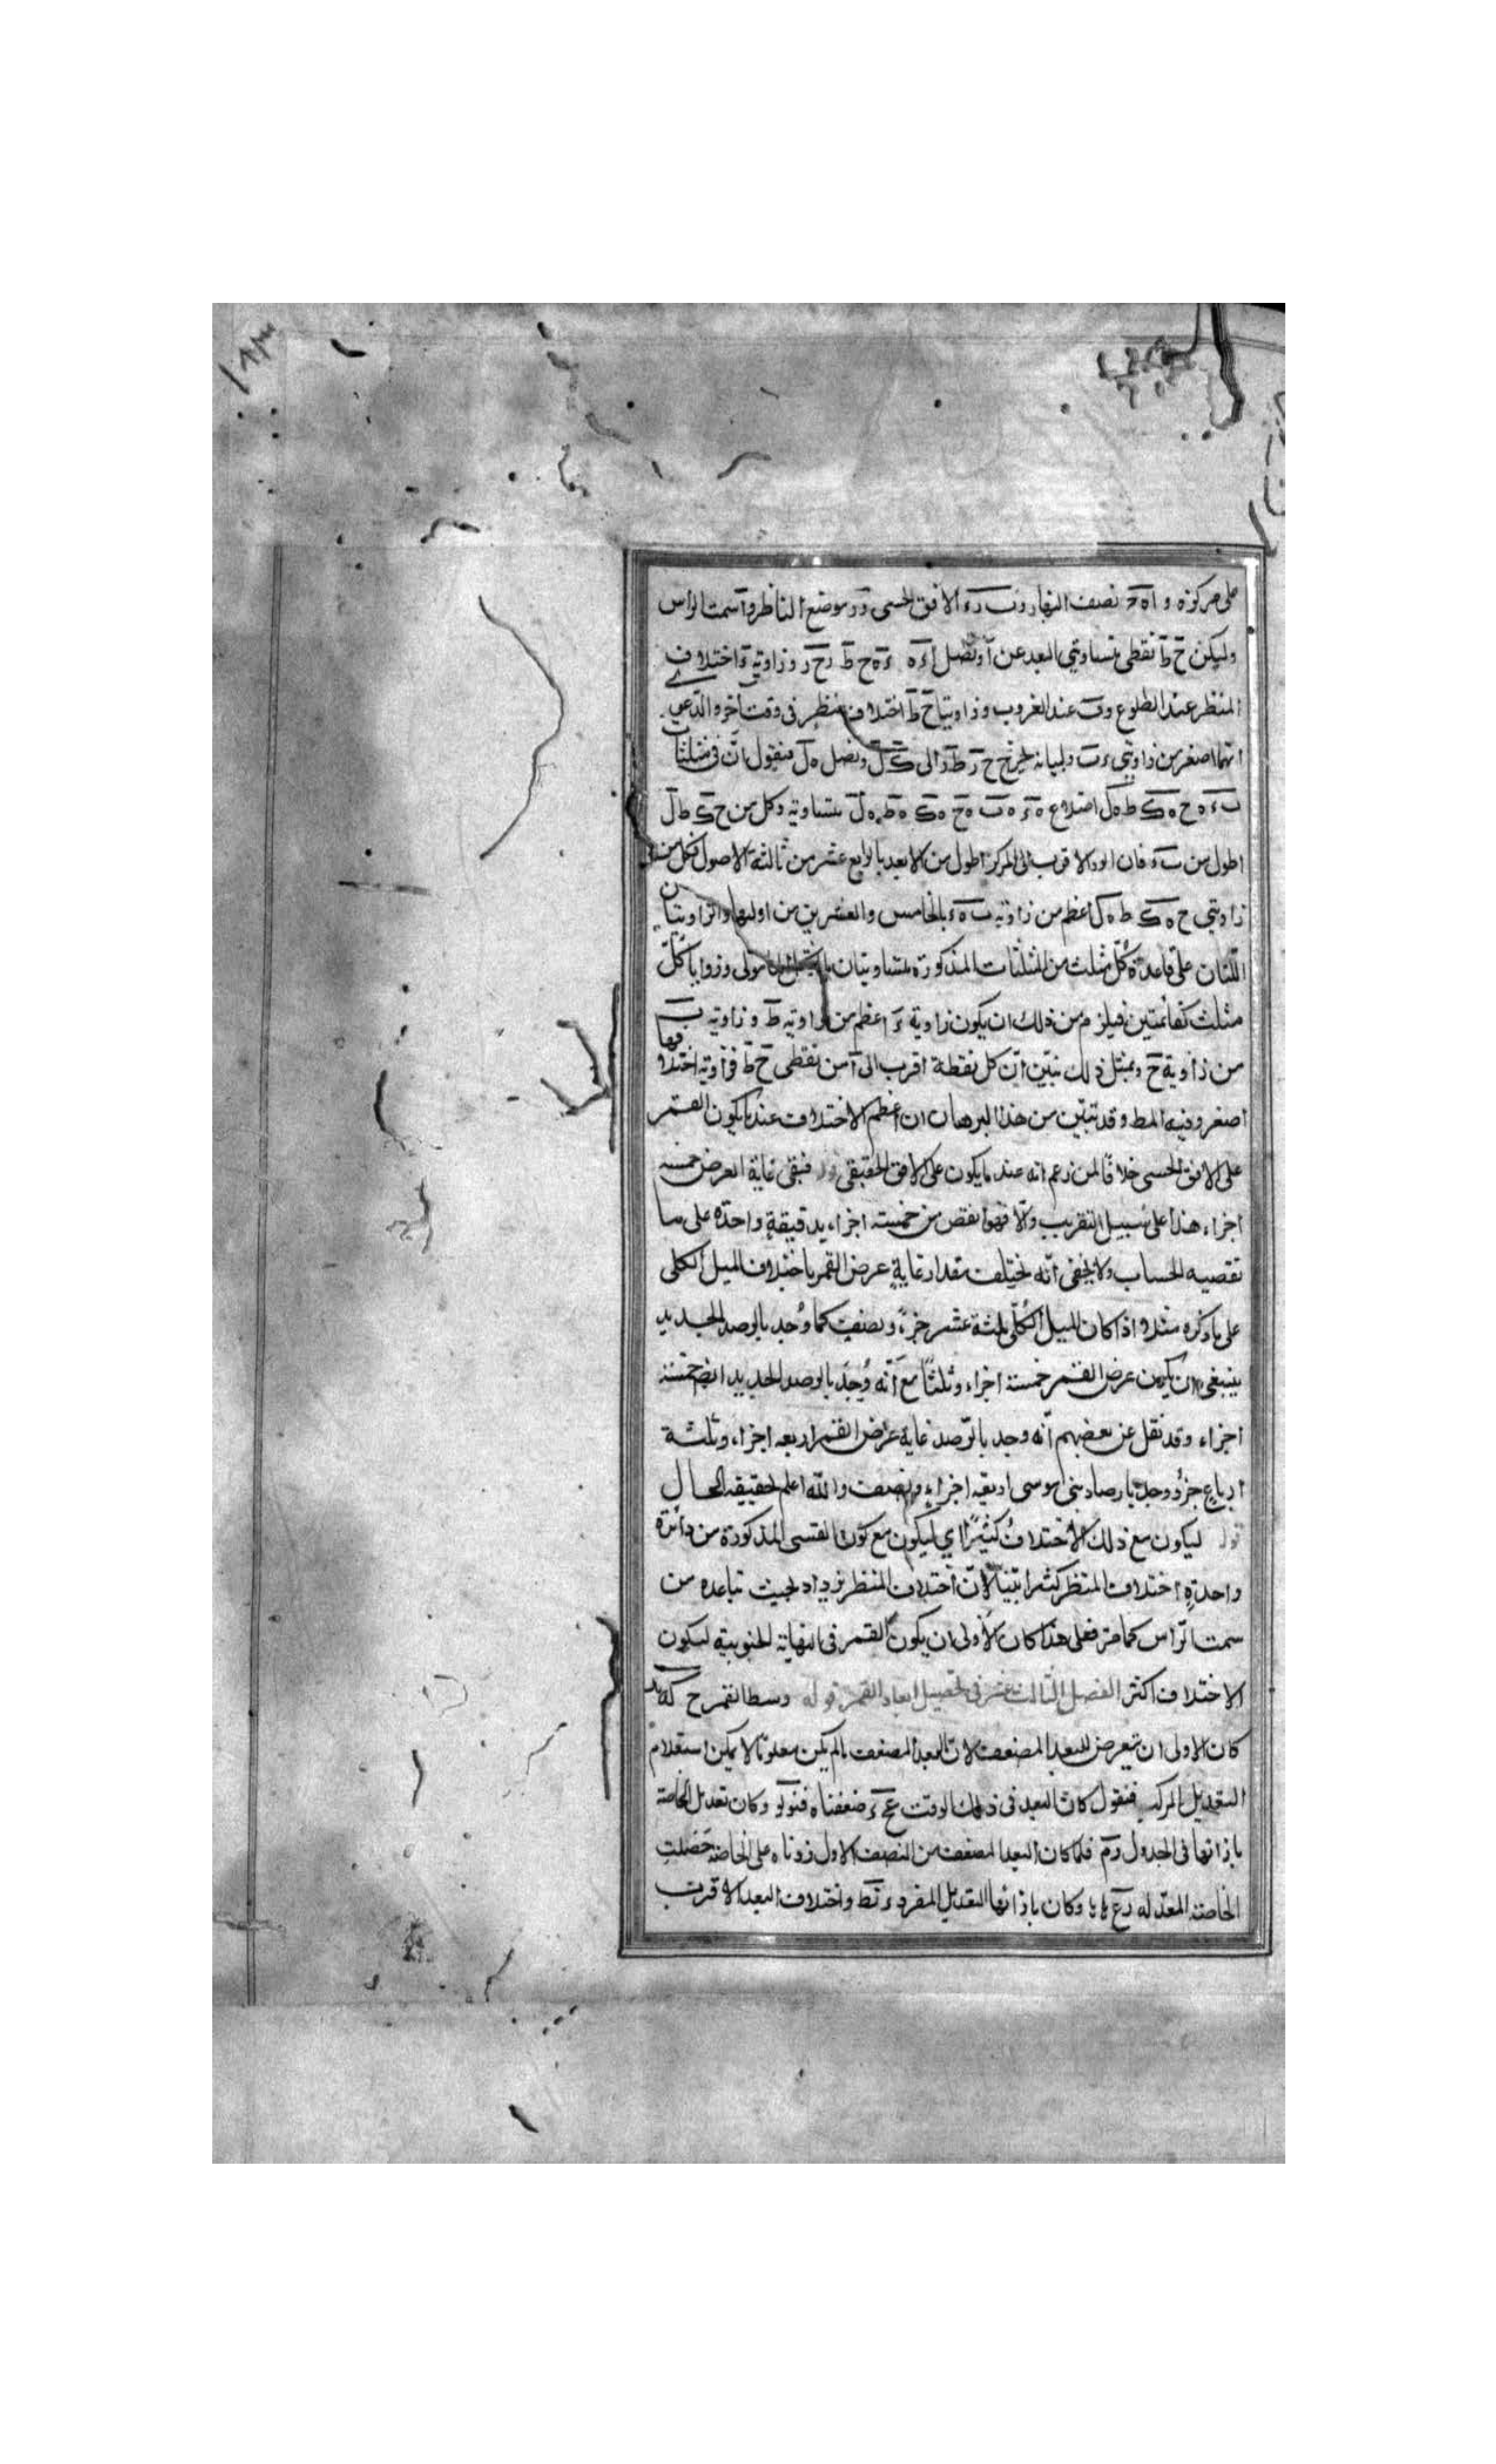 على مركزه و اه ح نصف النهار و ب ر ء الافق الحسى و ر موضع الناظر و آ سمت الراس
وليكن ح ط نقطتى متساويتى البعد عن آ و نصل ء ه ه ح ط ر ح ر و زاوية ء اختلاف
المنظر عند الطلوع و ب عند الغروب و زاويتا ح ط اختلاف منظر فى وقت آخر و الدعى
انهما اصغر من زاويتى ء ب و لبيانه لنخرج ح ر ط ر الى ك ل و نصل ه ل فنقول ان فى مثلثات
ب ء ه ح ه ك ط ه ل اضلاع ه ء ه ب ه ح ه ك ه ط ه ل متساوية وكل من ح ك ط ل
اطول من ب ء فان الوتر الاقرب الى المركز اطول من الابعد بالرابع عشر من ثالثة الاصول فكل من
زاويتى ح ه ك ط ه ل اعظم من زاوية ب ه ء بالخامس والعشرين من اوليها والزاويتان
اللتان على قاعدة كل مثلث من المثلثات المذكورة متساويتان وزوايا كل
مثلث كقائمتين فيلزم من ذلك ان يكون زاوية ء اعظم من زاوية ط و زاوية ب
من زاوية ح وبمثل ذلك نبين ان كل نقطة اقرب الى آ من نقطتى ح ط فزاوية اختلافها
اصغر وفيه المط وقد تبين من هذا البرهان ان اعظم الاختلاف عند ما يكون القمر
على الافق الحسى خلافا لمن زعم انه عند ما يكون على الافق الحقيقى قوله فبقى غاية العرض خمسة
اجزاء هذا على سبيل التقريب والا فهو انقص من خمسة اجزاء بدقيقة واحدة على ما
تقتضيه الحساب ولا يخفى انه يختلف مقدار غاية عرض القمر باختلاف الميل الكلى
على ما ذكره مثلا اذا كان الميل الكلى ثلثة عشر جزء ونصف كما وجد بالرصد الجديد
ينبغى ان يكون عرض القمر خمسة اجزاء وثلثا مع انه وجد بالرصد الجديد ايضا خمسة
اجزاء وقد نقل عن بعضهم انه وجد بالرصد غاية عرض القمر اربعة اجزاء وثلثة
ارباع جزء ووجد بارصاد بنى موسى اربعة اجزاء ونصف والله اعلم بحقيقة الحال
قوله ليكون مع ذلك الاختلاف كثيرا اي ليكون مع كون القسى المذكورة من دائرة
واحدة اختلاف المنظر كثيرا بينا لان اختلاف المنظر يزداد بحيث تباعده من
سمت الراس كما مر فعلى هذا كان الاولى ان يكون القمر فى النهاية الجنوبية ليكون
الاختلاف اكثر الفصل الثالث عشر فى تحصيل ابعاد القمر قوله وسط القمر ح كه
كان الاولى ان يتعرض للبعد المضعف لان البعد المضعف ما لم يكن معلوما لا يمكن استعلام
التعديل المركب فنقول كان البعد فى ذلك الوقت عح ء ضعفناه فنولو وكان تعديل الخاصة
بازائها فى الجدول رم فلما كان البعد المضعف من النصف الاول زدناه على الخاصة حصلت
الخاصة المعدلة وكان بازائها التعديل المفرد ء نط واختلاف البعد الاقرب